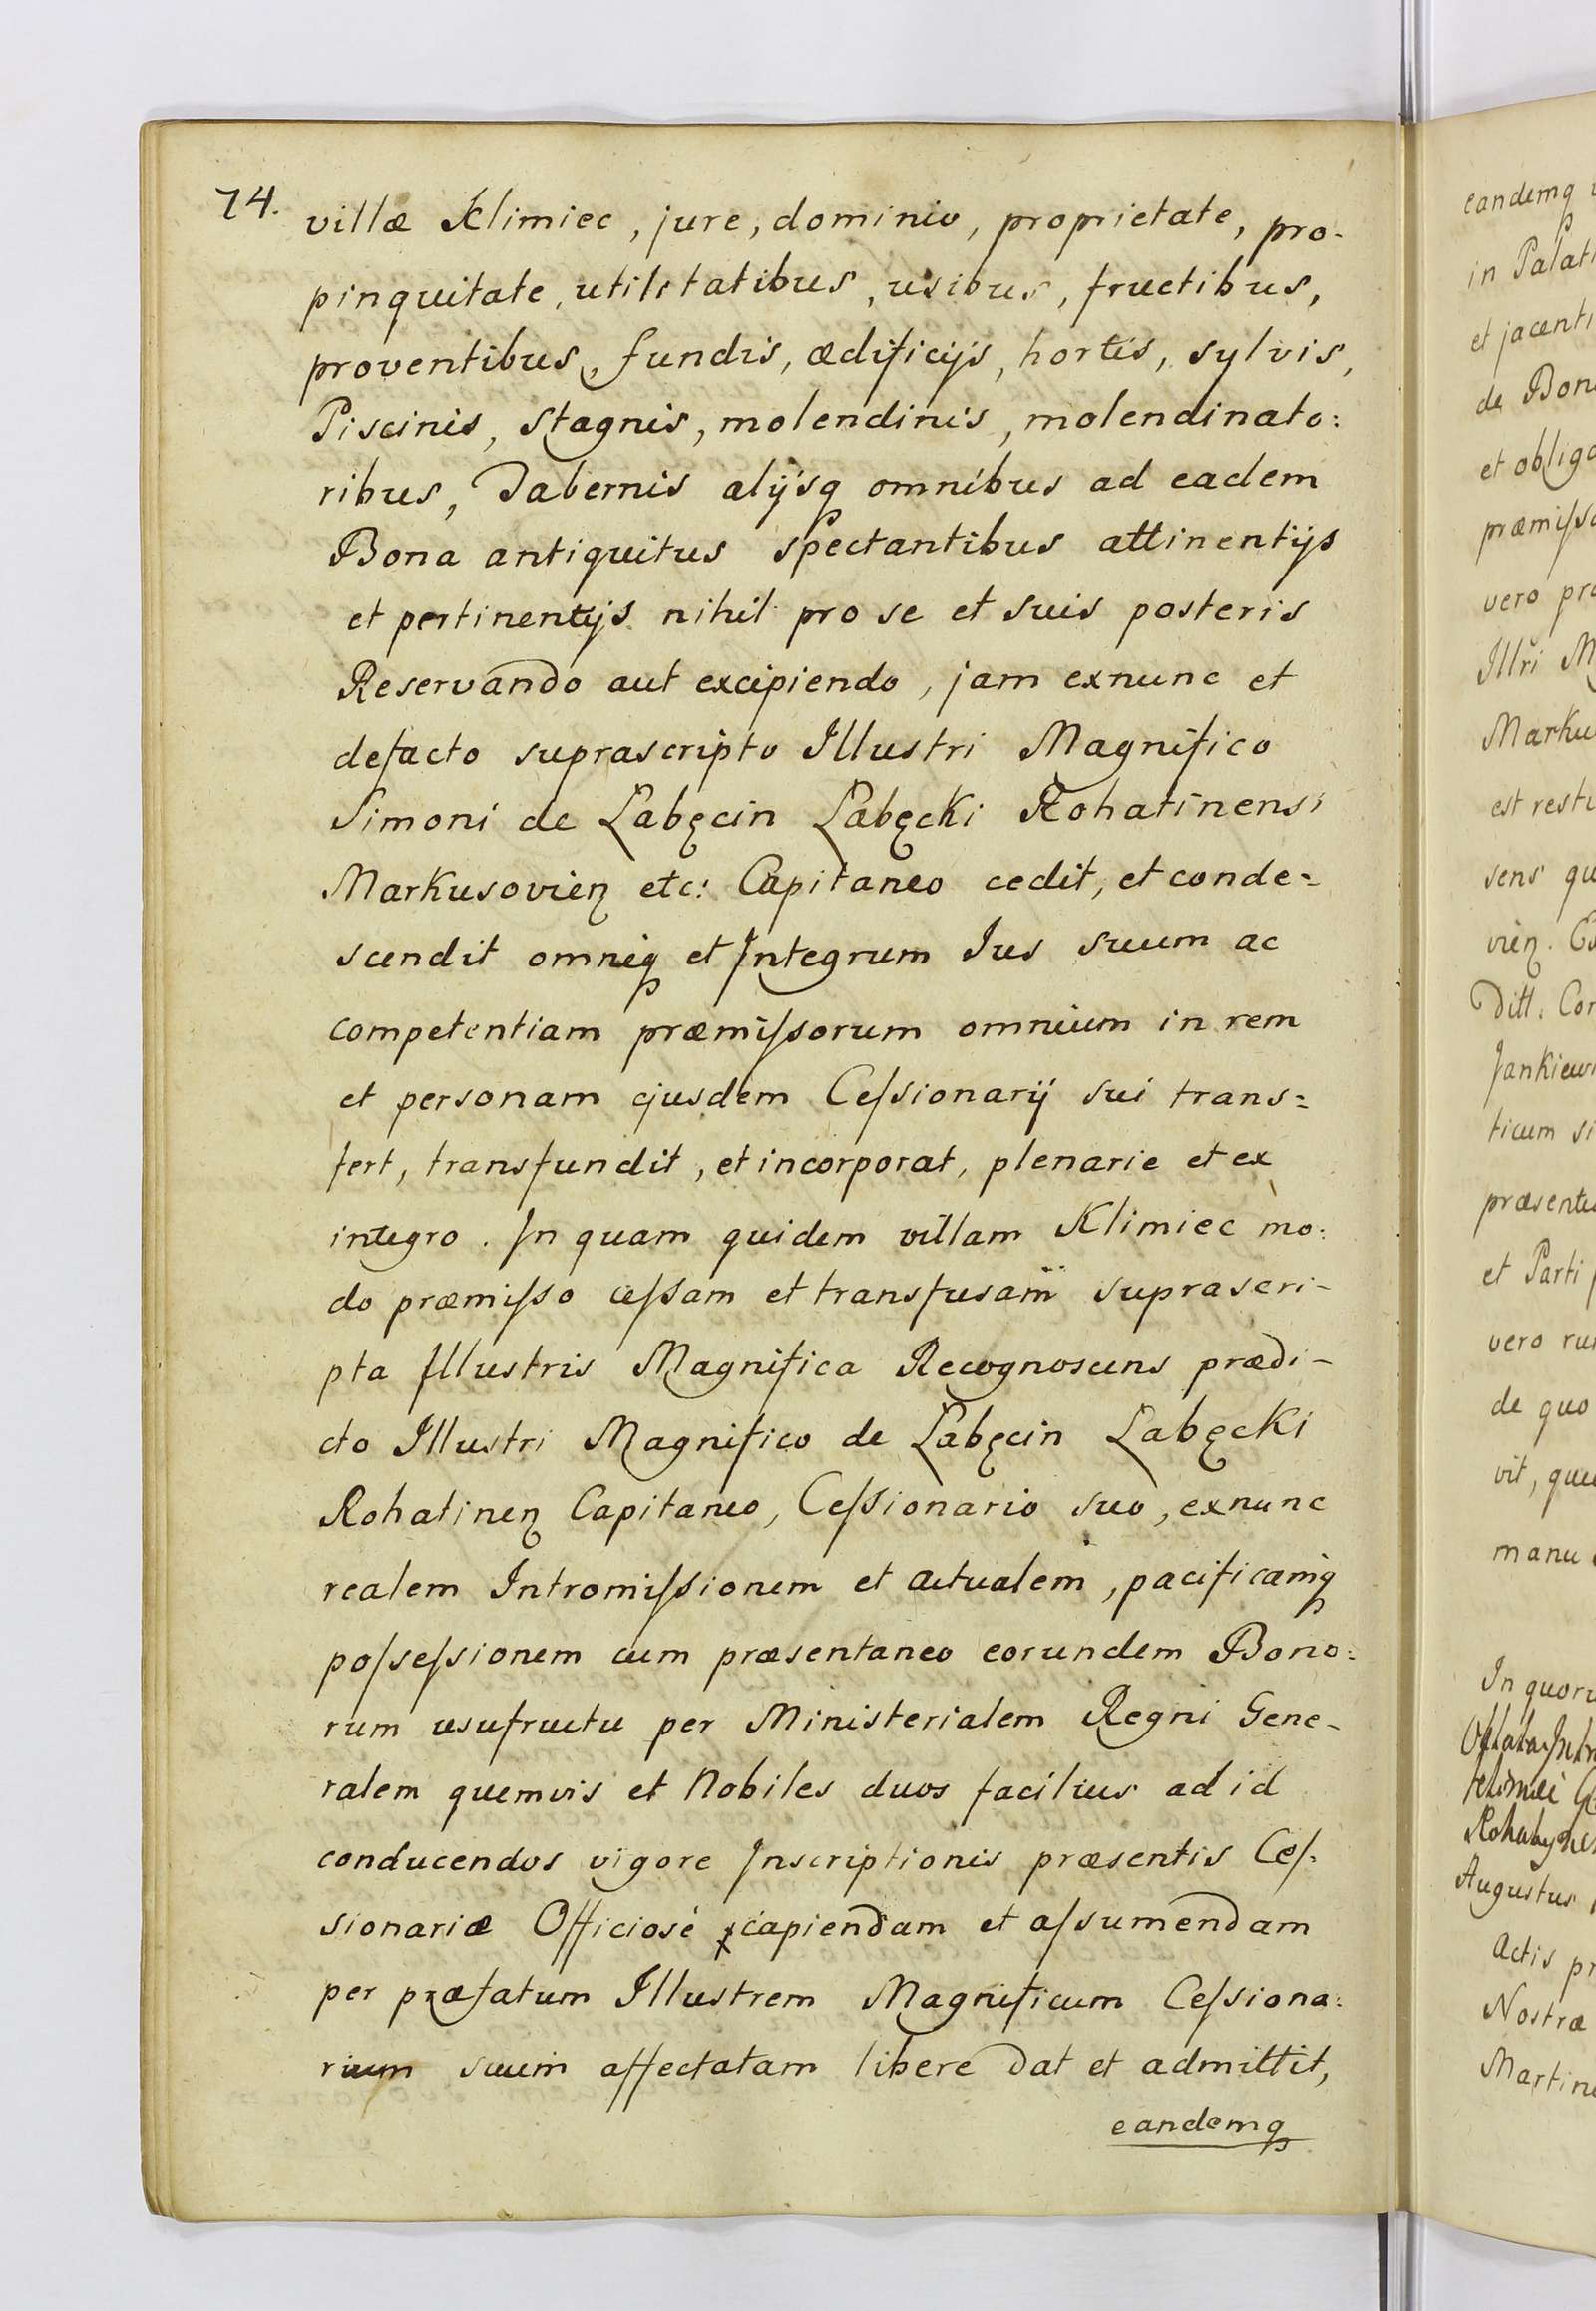 74.
villæ Klimiec, jure, dominio, proprietate, pro-
pinquitate, utilitatibus, usibus, fructibus,
proventibus, fundis, ædificijs, hortis, sylvis,
Piscinis, Stagnis, molendinis, molendinato:
ribus, Tabernis alijsq omnibus ad eadem
Bona antiquitus spectantibus attinentijs
et pertinentijs nihil pro se et suis posteris
Reservando aut excipiendo, jam exnunc et
defacto suprascripto Illustri Magnifico
Simoni de Łabęcin Łabęcki Rohatinensi
Markusovien etc: Capitaneo cedit, et conde=
scendit omneq et Integrum Jus suum ac
competentiam præmiſsorum omnium in rem
et personam ejusdem Ceſsionarij sui trans=
fert, transfundit, et incorporat, plenarie et ex
integro. In quam quidem villam Klimiec mo:
do præmiſso ceſsam et transfusam suprascri-
pta Illustris Magnifica Recognoscens prædi-
cto Illustri Magnifico de Łabęcin Łabęcki
Rohatinen Capitaneo, Ceſsionario suo, exnunc
realem Intromiſsionem et actualem, pacificamq
poſseſsionem cum præsentaneo eorundem Bono:
rum usufructu per Ministerialem Regni Gene-
ralem quemvis et Nobiles duos facilius ad id
conducendos vigore Inscriptionis præsentis Ceſ:
sionariæ Officiosè capiendam et aſsumendam
per præfatum Illustrem Magnificum Ceſsiona:
rium suum affectatam libere dat et admittit,
eandemq
eandemq
in Palati
et jacenti
de Bon
et obliga
præmiſs
vero pr
Illri M
Marku
est resti
sens qu
vien. C
Ditt. Cor
Jankiewi
ticum si
præsente
et Parti
vero ru
de quo
vit, que
manu
In quoru
Augustus
Actis pr
Nostræ
Martin